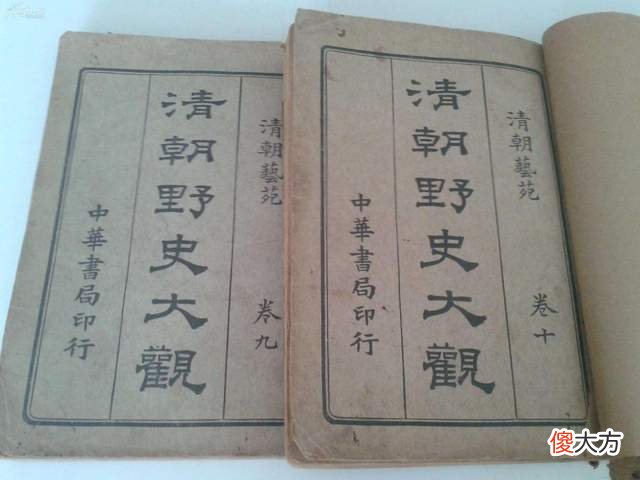 清朝藝苑 卷九
清朝野史大觀
中華書局印行
清朝藝苑 卷十
清朝野史大觀
中華書局印行
傻大方